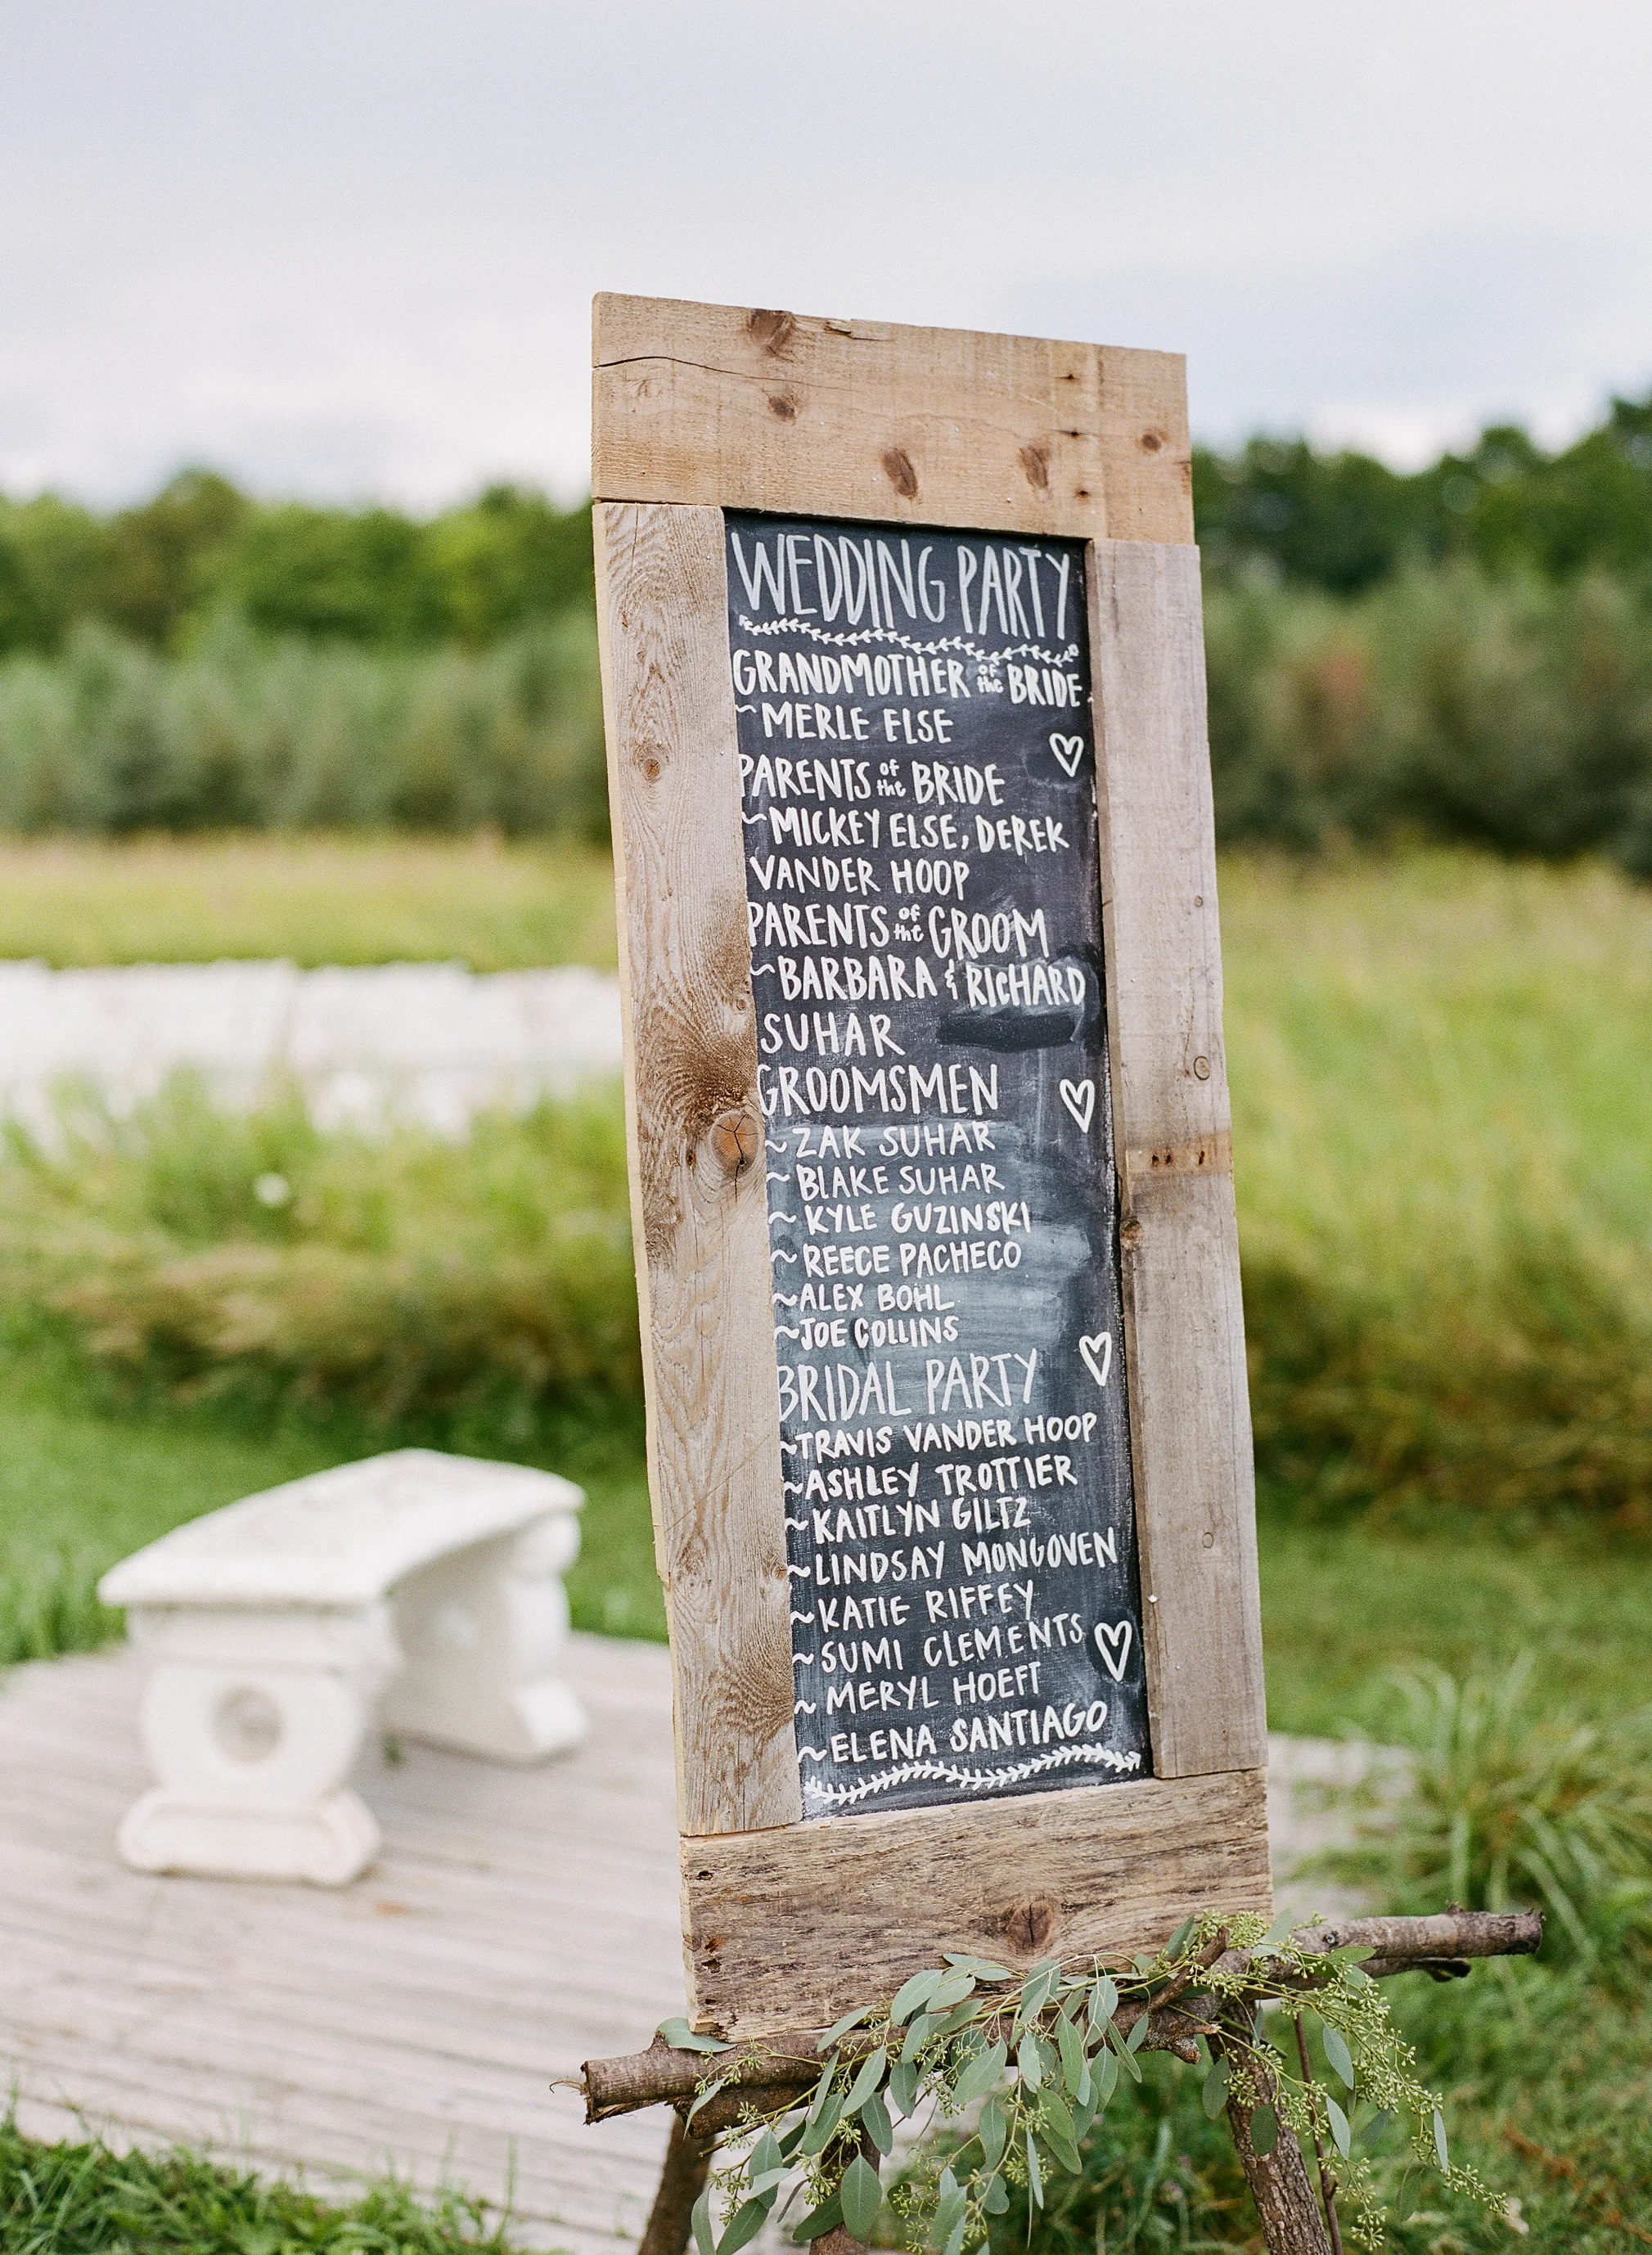 WEDDING PARTY
GRANDMOTHER of the BRIDE
~ MERLE ELSE
PARENTS of the BRIDE
~ MICKEY ELSE, DEREK
VANDER HOOP
PARENTS of the GROOM
~ BARBARA & RICHARD
SUHAR
GROOMSMEN
~ ZAK SUHAR
~ BLAKE SUHAR
~ KYLE GUZINSKI
~ REECE PACHECO
~ ALEX BOHL
~ JOE COLLINS
BRIDAL PARTY
~ TRAVIS VANDER HOOP
~ ASHLEY TROTTIER
~ KAITLYN GILTZ
~ LINDSAY MONGOVEN
~ KATIE RIFFEY
~ SUMI CLEMENTS
~ MERYL HOEFT
~ ELENA SANTIAGO